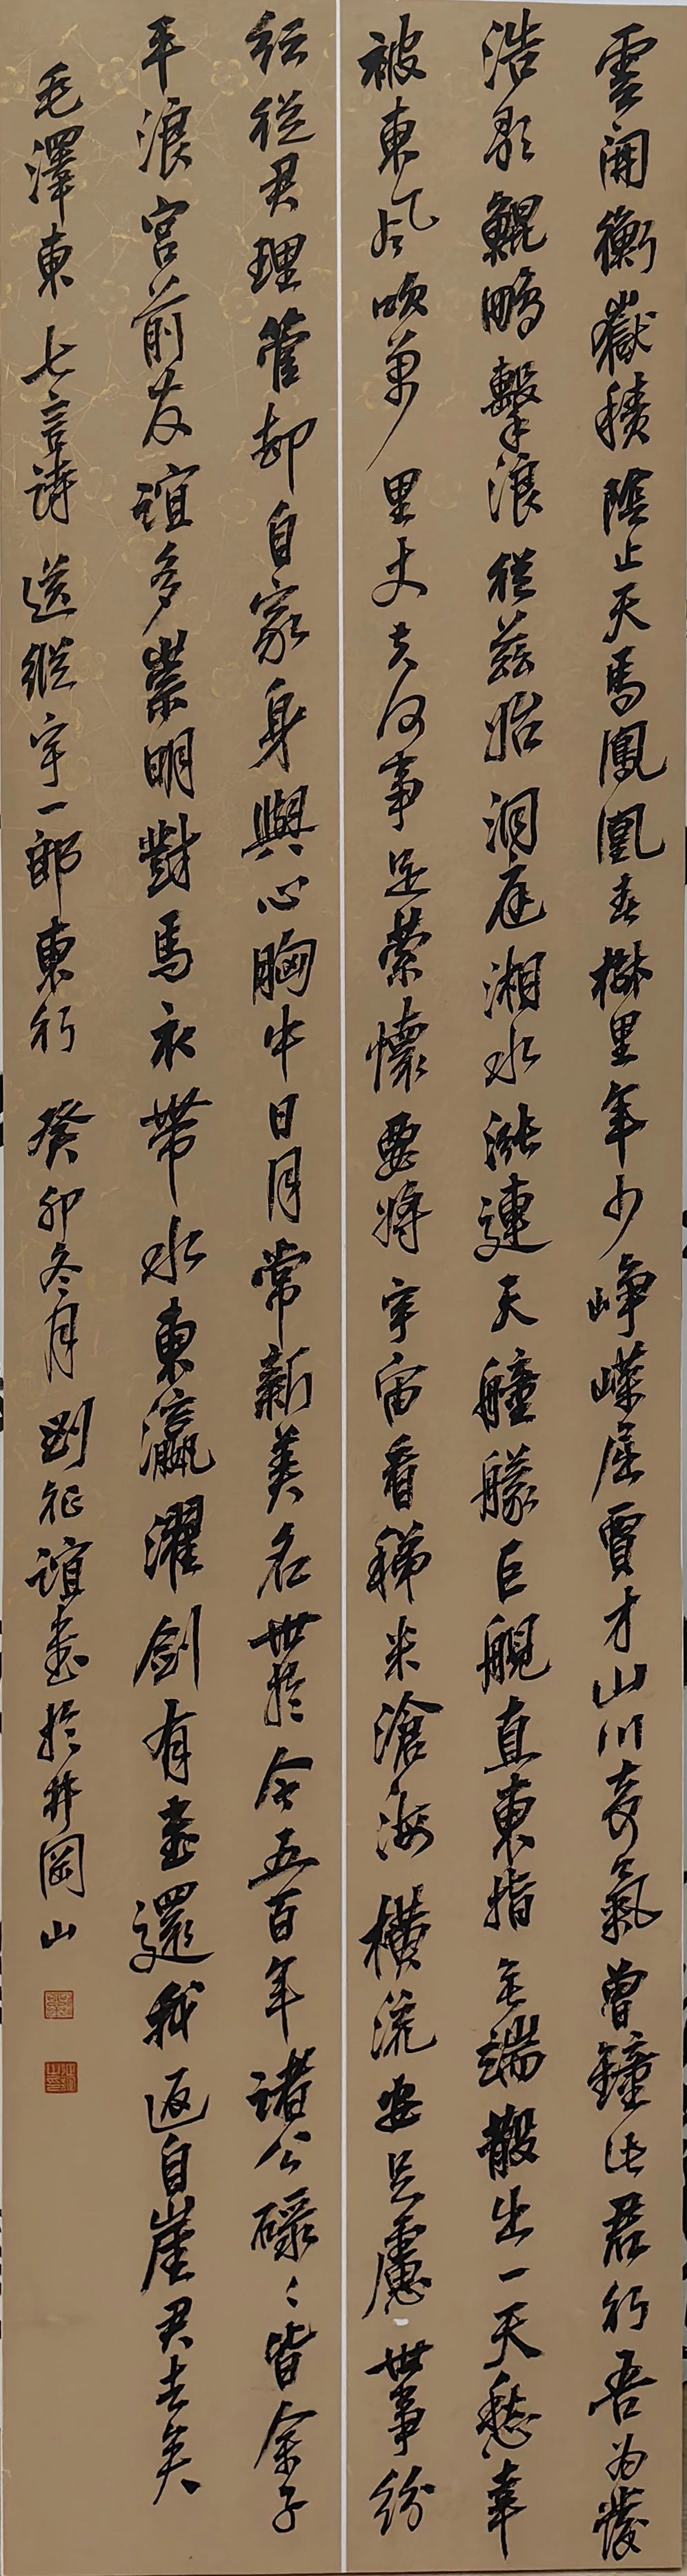 雲開衡嶽積陰止天馬鳳凰春樹里年少崢嶸屈賈才山川奇氣曾鐘此君行吾為發
浩歌鯤鵬擊浪從茲始洞庭湘水漲連天艟艨巨艦直東指無端散出一天愁幸
被東風吹萬里丈夫何事足縈懷要將宇宙看稊米滄海橫流安足慮世事紛
紜從君理管卻自家身與心胸中日月常新美名世於今五百年諸公碌々皆餘子
平浪宮前友誼多崇明對馬衣帶水東瀛濯劍有書還我返自崖君去矣
毛澤東七言詩送縱宇一郎東行癸卯冬月劉征誼書於井岡山